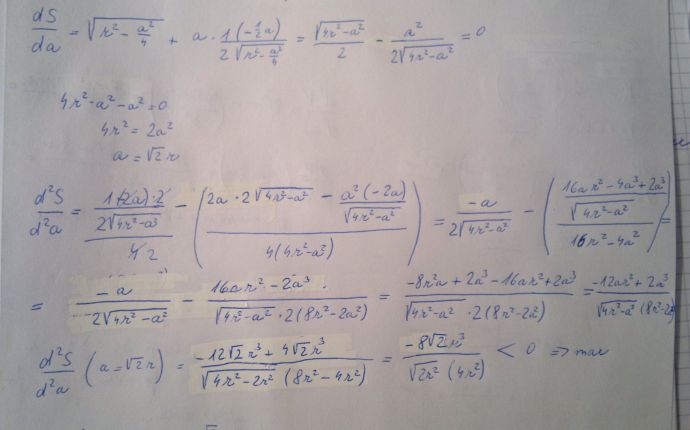 dS/da = √(r² - a²/4) + a · 1(-½a)/(2√(r² - a²/4)) = √(4r²-a²)/2 - a²/(2√(4r²-a²)) = 0
4r²-a²-a²=0
4r² = 2a²
a = √2 r
d²S/d²a = (1(-2a)·2/(2√(4r²-a²)))/(4 2) - ((2a·2√(4r²-a²) - a²(-2a)/√(4r²-a²))/(4(4r²-a²))) = -a/(2√(4r²-a²)) - (((16ar²-4a³+2a³)/√(4r²-a²))/(16r²-4a²)) =
= -a/(2√(4r²-a²)) - (16ar²-2a³)/(√(4r²-a²)·2(8r²-2a²)) = (-8r²a+2a³-16ar²+2a³)/(√(4r²-a²)·2(8r²-2a²)) = (-12ar²+2a³)/(√(4r²-a²)(8r²-2a²)
d²S/d²a (a=√2r) = (-12√2r³+4√2r³)/(√(4r²-2r²)(8r²-4r²)) = -8√2r³/(√2r²(4r²)) < 0 => max